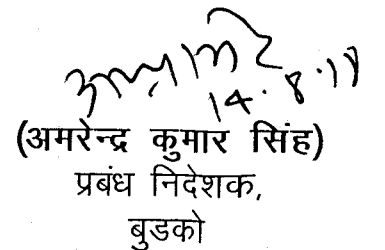 14.8.18
(अमरेन्द्र कुमार सिंह)
प्रबंध निदेशक,
बुडको